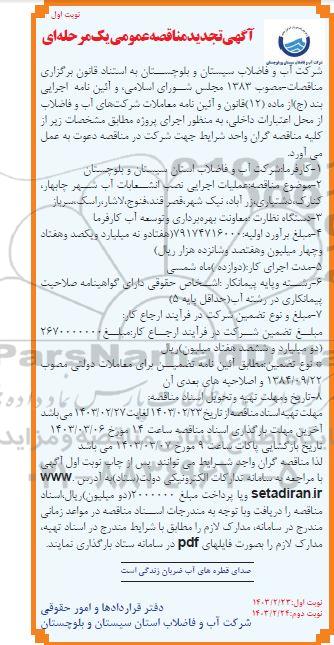 نوبت اول
آگهی تجدید مناقصه عمومی یک مرحله‌ای
شرکت آب و فاضلاب سیستان و بلوچستان
شرکت آب و فاضلاب سیستان و بلوچستان به استناد قانون برگزاری
مناقصات-مصوب ۱۳۸۳ مجلس شورای اسلامی، و آئین نامه اجرایی
بند (ج) از ماده (۱۲) قانون و آئین نامه معاملات شرکت‌های آب و فاضلاب
از محل اعتبارات داخلی، به منظور اجرای پروژه مطابق مشخصات زیر از
کلیه مناقصه گران واحد شرایط جهت شرکت در مناقصه دعوت به عمل
می آورد.
۱-کارفرما:شرکت آب و فاضلاب استان سیستان و بلوچستان
۲-موضوع مناقصه:عملیات اجرایی نصب انشعابات آب شهر چابهار،
کنارک،دشتیاری،زرآباد، نیک شهر،قصرقند،فنوج،لاشار،اسک،سرباز
۳-دستگاه نظارت :معاونت بهره‌برداری و توسعه آب کارفرما
۴-مبلغ برآورد اولیه:۷۹۱۷۴۷۱۶۰۰۰(هفتادو نه میلیارد ویکصد وهفتاد
وچهار میلیون وهفتصد وشانزده هزار ریال)
۵-مدت اجرای کار:(دوازده )ماه شمسی
۶-رشته وپایه پیمانکار :اشخاص حقوقی دارای گواهینامه صلاحیت
پیمانکاری در رشته آب(حداقل پایه ۵)
۷-مبلغ و نوع تضمین شرکت در فرآیند ارجاع کار:
مبلغ تضمین شرکت در فرآیند ارجاع کار:مبلغ ۲۶۷۰۰۰۰۰۰۰
(دو میلیارد و ششصد هفتاد میلیون)ریال
نوع تضمین:مطابق آئین نامه تضمین برای معاملات دولتی مصوب
۱۳۸۴/۰۹/۲۲ و اصلاحیه های بعدی آن
۸-تاریخ ومهلت تهیه وتحویل اسناد مناقصه:
مهلت تهیه اسناد مناقصه از تاریخ ۱۴۰۳/۰۲/۲۳ لغایت ۱۴۰۳/۰۲/۲۷ می باشد
آخرین مهلت بارگذاری اسناد مناقصه ساعت ۱۴ مورخ ۱۴۰۳/۰۳/۰۶
تاریخ بازگشایی پاکات ساعت ۹ مورخ ۱۴۰۳/۰۳/۰۷ می باشد
لذا مناقصه گران واجد شرایط می توانند پس از چاپ نوبت اول آگهی
با مراجعه به سامانه تدارکات الکترونیکی دولت(ستاد)به آدرس www.
setadiran.ir وبا پرداخت مبلغ ۲۰۰۰۰۰۰(دو میلیون)ریال،اسناد
مناقصه را دریافت وبا توجه به مندرجات اسناد مناقصه در مواعد زمانی
مندرج در سامانه، مدارک لازم را مطابق با شرایط مندرج در اسناد تهیه،
مدارک لازم را بصورت فایلهای pdf در سامانه ستاد بارگذاری نمایند.
صدای قطره های آب ضربان زندگی است
نوبت اول:۱۴۰۳/۲/۲۳
نوبت دوم:۱۴۰۳/۲/۲۴
دفتر قراردادها و امور حقوقی
شرکت آب و فاضلاب استان سیستان و بلوچستان